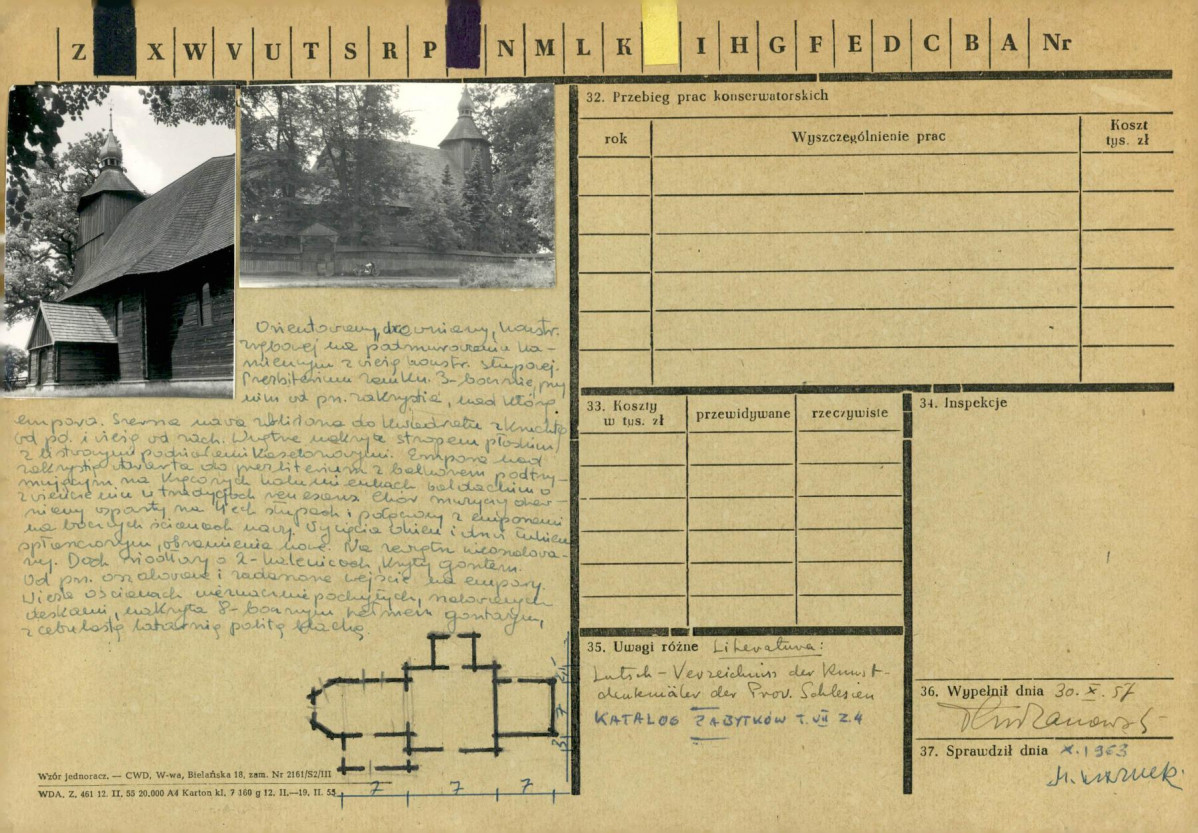 Z X W V U T S R P N M L K I H G F E D C B A Nr
Orientowany, drewniany, konstr.
zrębowej na podmurowaniu ka-
miennym z wieżą konstr. słupowej.
Prezbiterium zamkn. 3-bocznie, przy
nim od pn. zakrystia, nad którą
empora. Szersza nawa zbliżona do kwadratu z kruchtą
od pd. i wieżą od zach. Wnętrze nakryte stropem płaskim
z listwowymi podziałami kasetonowymi. Empora nad
zakrystią otwarta do prezbiterium z balkonem podtrzy-
mującym na kręconych kolumienkach baldachim o
zwieńczeniu w tradycjach renesans. Chór muzyczny drew-
niany wsparty na 4-ech słupach i połączony z emporami
na bocznych ścianach nawy. Wycięcia okien i drzwi łukiem
spłaszczonym, obramienia nowe. Na zewnątrz nieoszalowa-
ny. Dach siodłowy o 2-kalenicach, kryty gontem.
Od pn. oszalowane i zadaszone wejście na empory
Wieża o ścianach nieznacznie pochyłych, szalowanych
deskami, nakryta 8-bocznym hełmem gontowym,
z cebulastą latarnią pobitą blachą.
7
3
7 7 7
Wzór jednoracz. — CWD, W-wa, Bielańska 18, zam. Nr 2161/S2/III
WDA. Z. 461 12. II. 55 20.000 A4 Karton kl. 7 160 g 12. II.—19. II. 55
32. Przebieg prac konserwatorskich
rok Wyszczególnienie prac Koszt
tys. zł
33. Koszty
w tys. zł przewidywane rzeczywiste
34. Inspekcje
35. Uwagi różne Literatura:
Lutsch – Verzeichniss der Kunst-
denkmäler der Prov. Schlesien
KATALOG ZABYTKÓW T. VII Z. 4
36. Wypełnił dnia 30. X. 57
37. Sprawdził dnia X. 1963